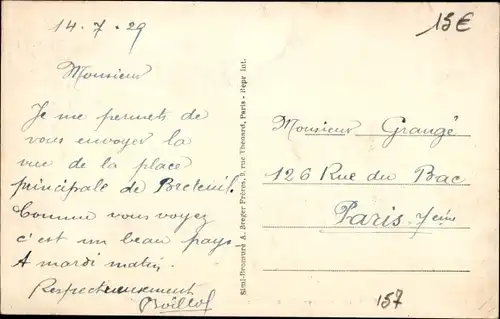 14.7.29
Monsieur
Je me permets de
vous envoyer la
vue de la place
principale de Breteuil.
Comme vous voyez
c'est un beau pays.
A mardi matin.
Respectueusement
Simi-Bromure A. Breger Frères, 9, rue Thénard, Paris - Repr int.
15€
Monsieur Grangé
126 Rue du Bac
Paris. 7eme
157